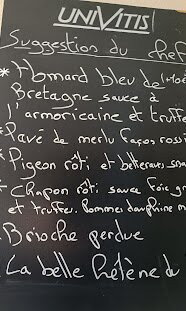 UNIVITIS
Suggestion du chef
* Homard bleu de
Bretagne sauce à
l'armoricaine et truffe
Pavé de merlu façon rossi
Pigeon rôti et betteraves
Chapon rôti sauce foie gr
et truffes. Pommes dauphine m
Brioche perdue
La belle hélène d